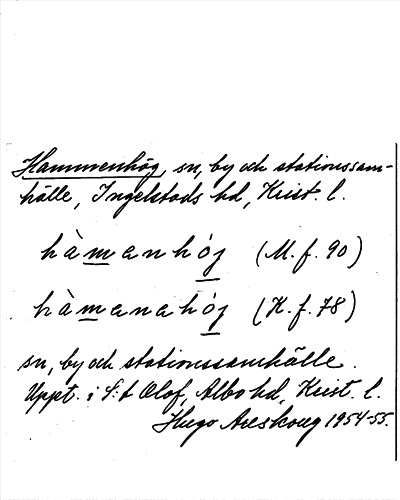 Hammenhög, sn, by och stationssam-
hälle, Ingelstads hd, Krist. l.
hàmanhǫ́g (M. f. 90)
hàmanahǫ́g (K. f. 78)
sn, by och stationssamhälle.
Uppt. i S:t Olof, Albo hd, Krist. l.
Hugo Areskoug 1954-55.